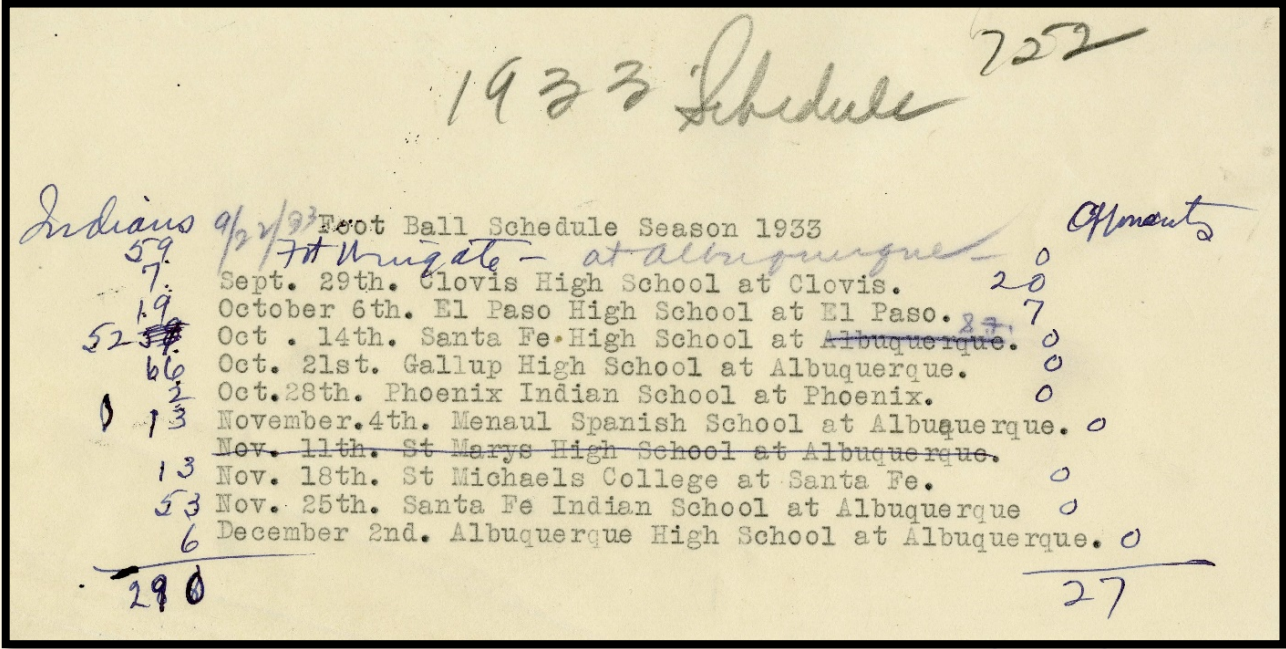 1933 Schedule 722
Indians 9/22/33 Foot Ball Schedule Season 1933 Opponents
59. Ft Wingate - at Albuquerque - 0
7. Sept. 29th. Clovis High School at Clovis. 20
19 October 6th. El Paso High School at El Paso. 7
52 Oct . 14th. Santa Fe High School at Albuquerque. 0
66 Oct. 21st. Gallup High School at Albuquerque. 0
2 Oct.28th. Phoenix Indian School at Phoenix. 0
13 November.4th. Menaul Spanish School at Albuquerque. 0
Nov. 11th. St Marys High School at Albuquerque.
13 Nov. 18th. St Michaels College at Santa Fe. 0
53 Nov. 25th. Santa Fe Indian School at Albuquerque 0
6 December 2nd. Albuquerque High School at Albuquerque. 0
290 27